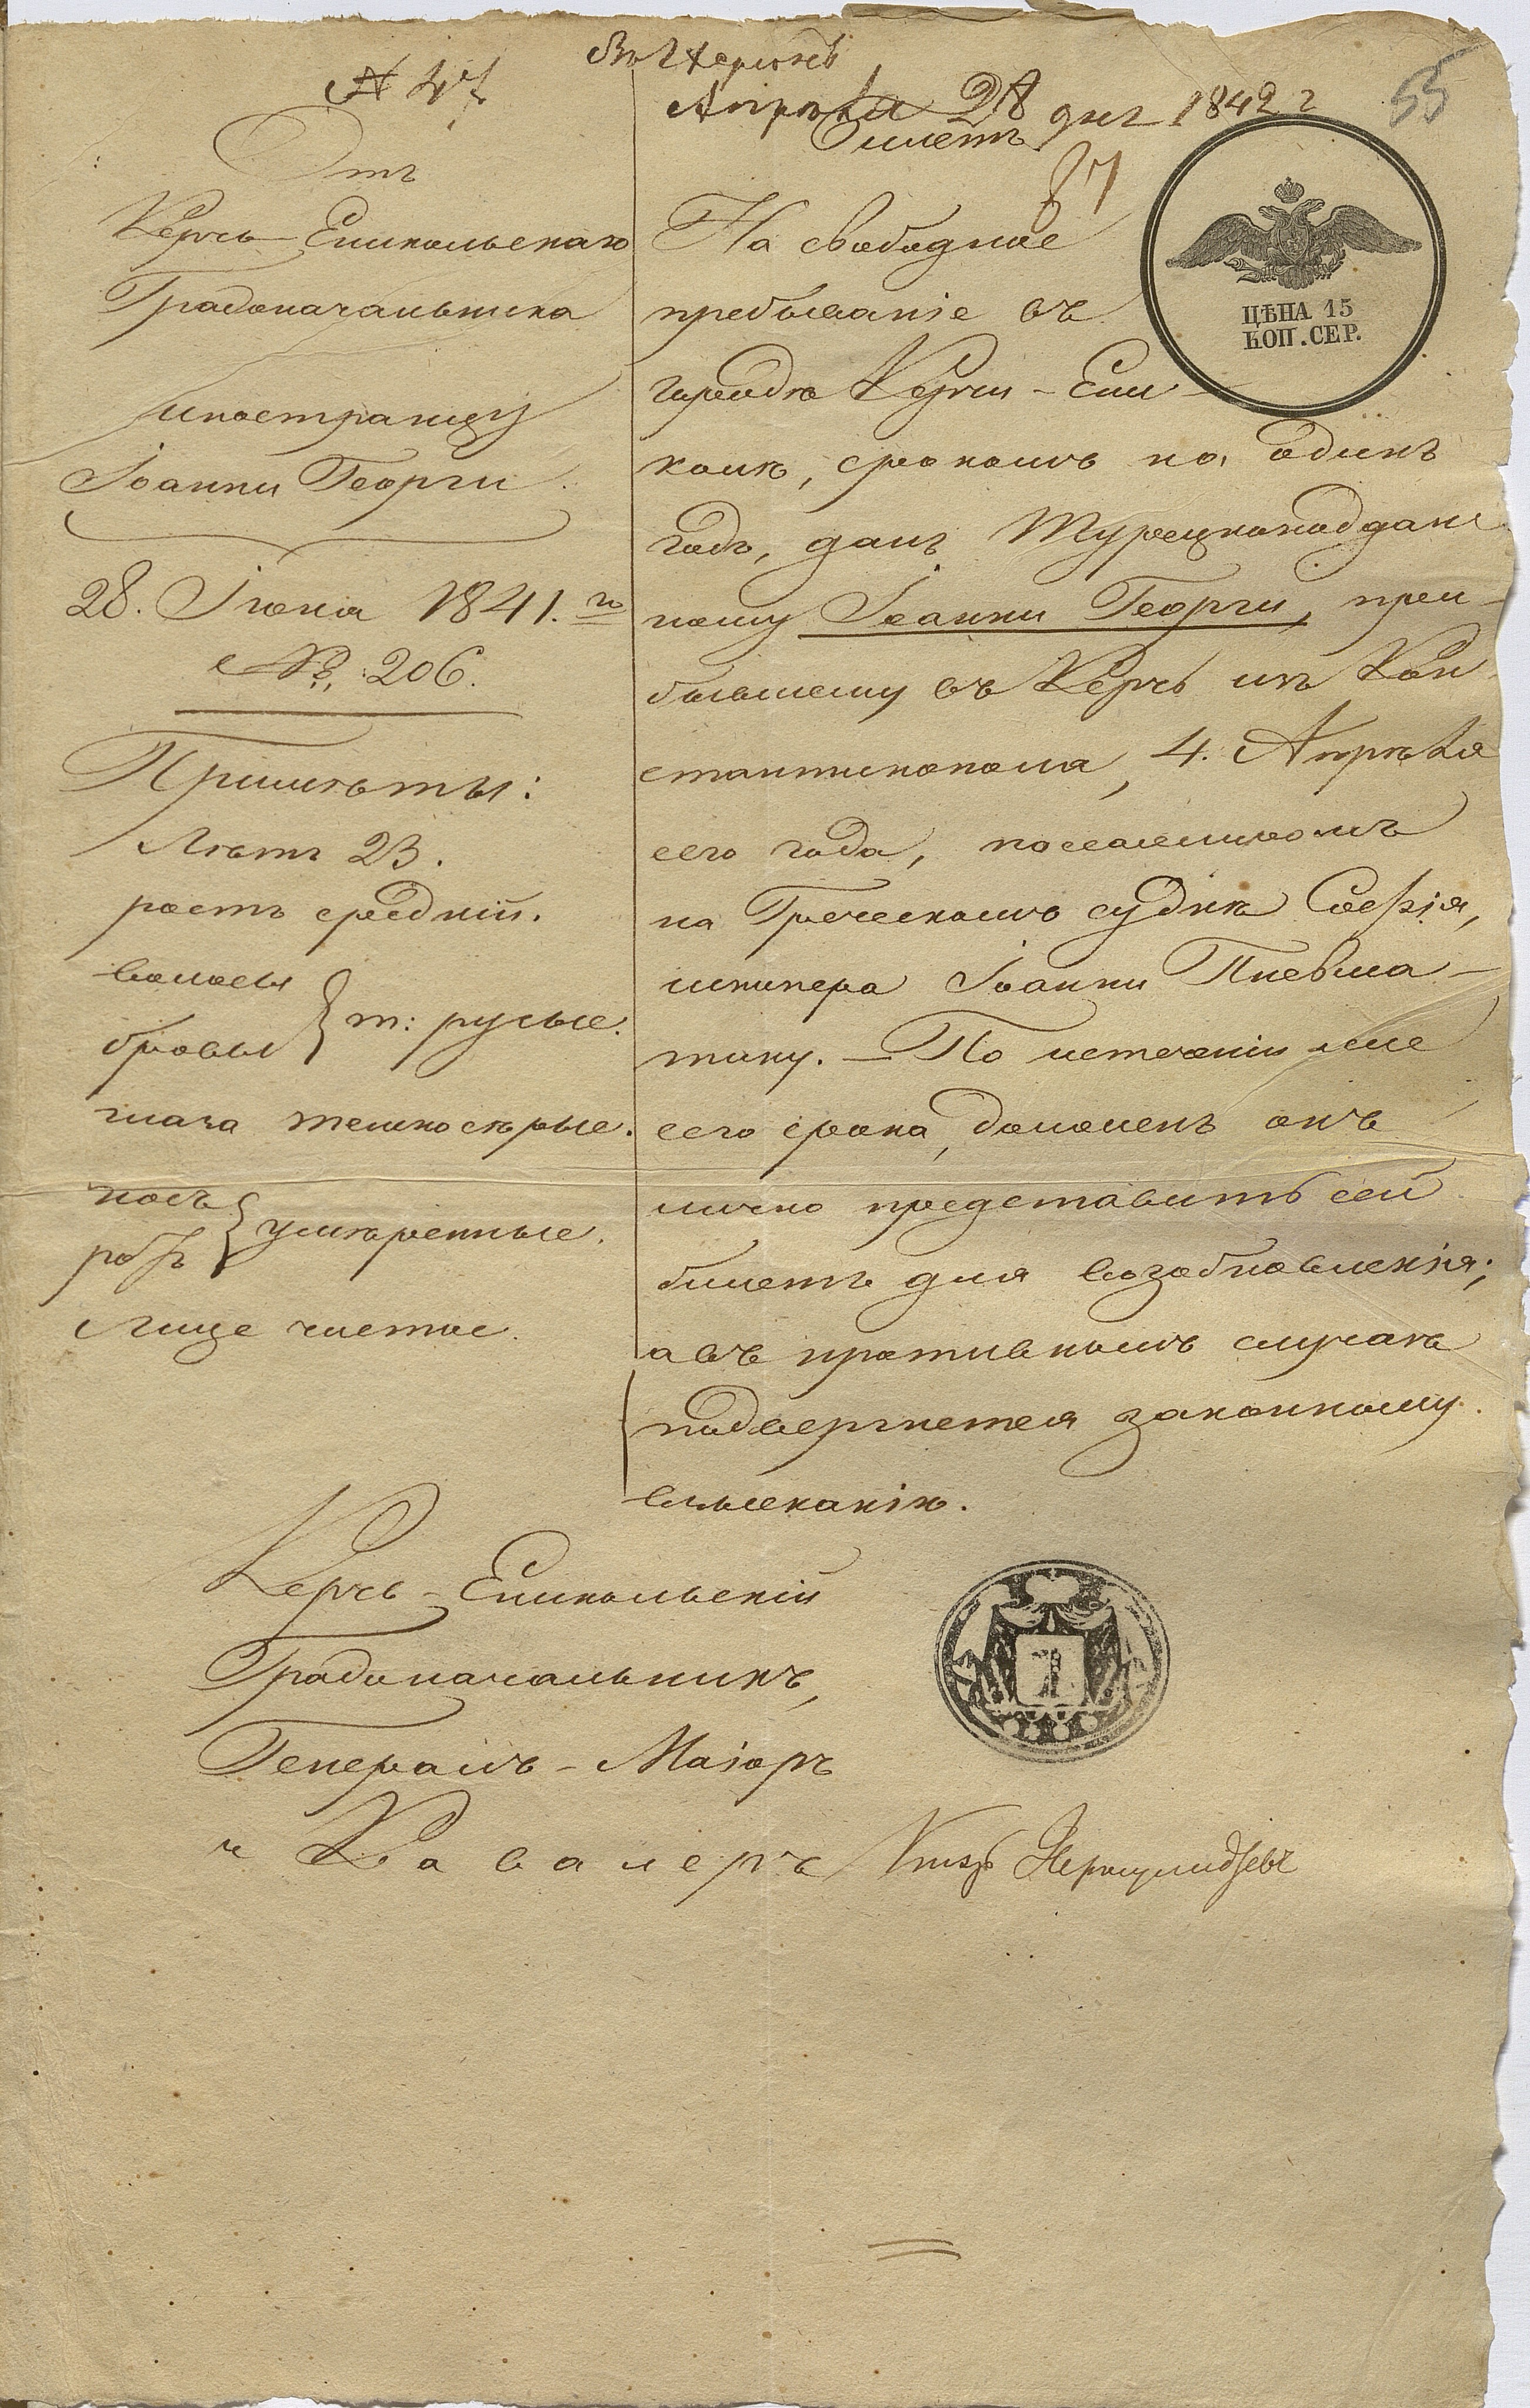 № 47
Апрѣля 28 дня 1842 г
55
Билетъ
87
Отъ
Керчь-Еникольскаго
Градоначальника
иностранцу
Іоанни Георги.
28. Іюня 1841.го
№. 206.
Примѣты:
Лѣтъ 23.
ростъ средній.
волосы
брови
т: русые.
глаза темносѣрые.
носъ
ротъ
умѣренные.
Лице чистое.
На свободное
пребываніе въ
городѣ Керчи-Ени-
колѣ, срокомъ на, одинъ
годъ, данъ Турецкоподдан
ному Іоанни Георги, при-
бывшему въ Керчь изъ Кон-
стантинополя, 4. Апрѣля
сего года, на
на Греческомъ суднѣ Софія,
шкипера Іоанни Пневма-
тику. — По истеченіи же
сего срока, долженъ онъ
лично представить сей
билетъ для возобновленія;
а въ противномъ случаѣ
подвергнется законному
взысканію.
Керчь-Еникольскій
Градоначальникъ,
Генералъ-Маіоръ
и Кавалеръ Князь Херхеулидзевъ
ЦѢНА 15
КОП. СЕР.